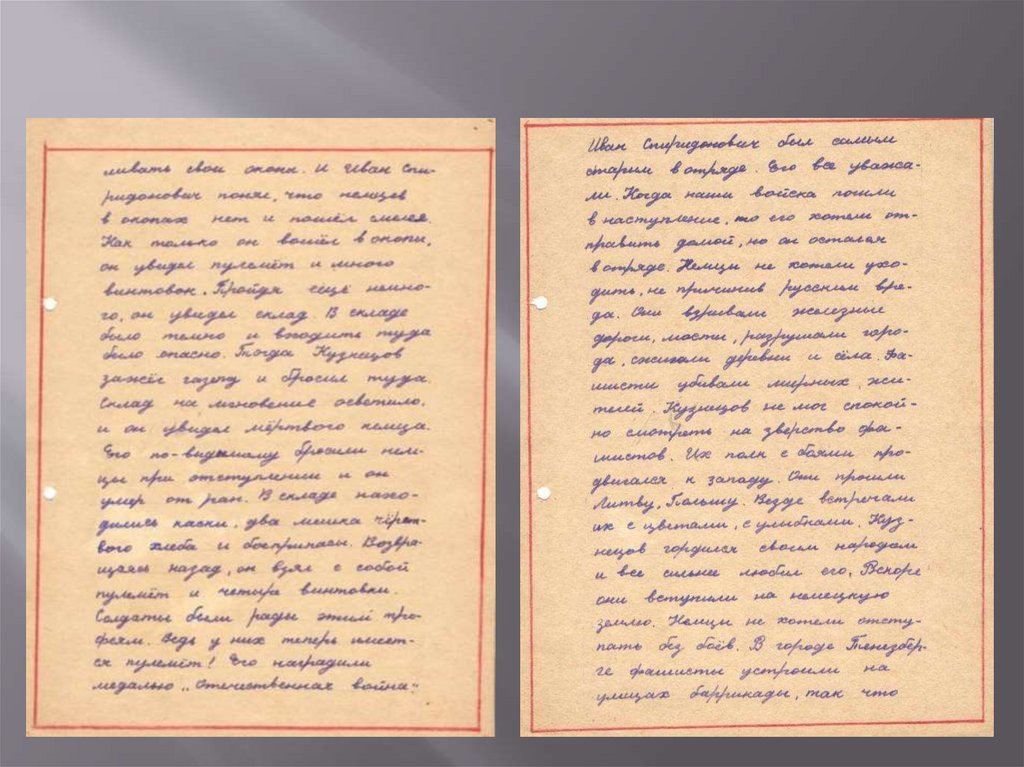 ливать свои окопы. И Иван Спи-
ридонович понял, что немцев
в окопах нет и пошёл смелее.
Как только он вошёл в окопы,
он увидел пулемёт и много
винтовок. Пройдя ещё немно-
го, он увидел склад. В складе
было темно и входить туда
было опасно. Тогда Кузнецов
зажёг газету и бросил туда.
Склад на мгновение осветило,
и он увидел мёртвого немца.
Его по-видимому бросили нем-
цы при отступлении и он
умер от ран. В складе нахо-
дились каски, два мешка чёрст-
вого хлеба и боеприпасы. Возвра-
щаясь назад, он взял с собой
пулемёт и четыре винтовки.
Солдаты были рады этим тро-
феям. Ведь у них теперь имеет-
ся пулемёт! Его наградили
медалью „Отечественная война".
Иван Спиридонович был самым
старым в отряде. Его все уважа-
ли. Когда наши войска пошли
в наступление, то его хотели от-
править домой, но он остался
в отряде. Немцы не хотели ухо-
дить, не причинив русским вре-
да. Они взрывали железные
дороги, мосты, разрушали горо-
да, сжигали деревни и сёла. Фа-
шисты убивали мирных жи-
телей. Кузнецов не мог спокой-
но смотреть на зверство фа-
шистов. Их полк с боями про-
двигался к западу. Они прошли
Литву, Польшу. Везде встречали
их с цветами, с улыбками. Куз-
нецов гордился своим народом
и все сильнее любил его. Вскоре
они вступили на немецкую
землю. Немцы не хотели отсту-
пать без боёв. В городе Тенезбер-
ге фашисты устроили на
улицах баррикады, так что